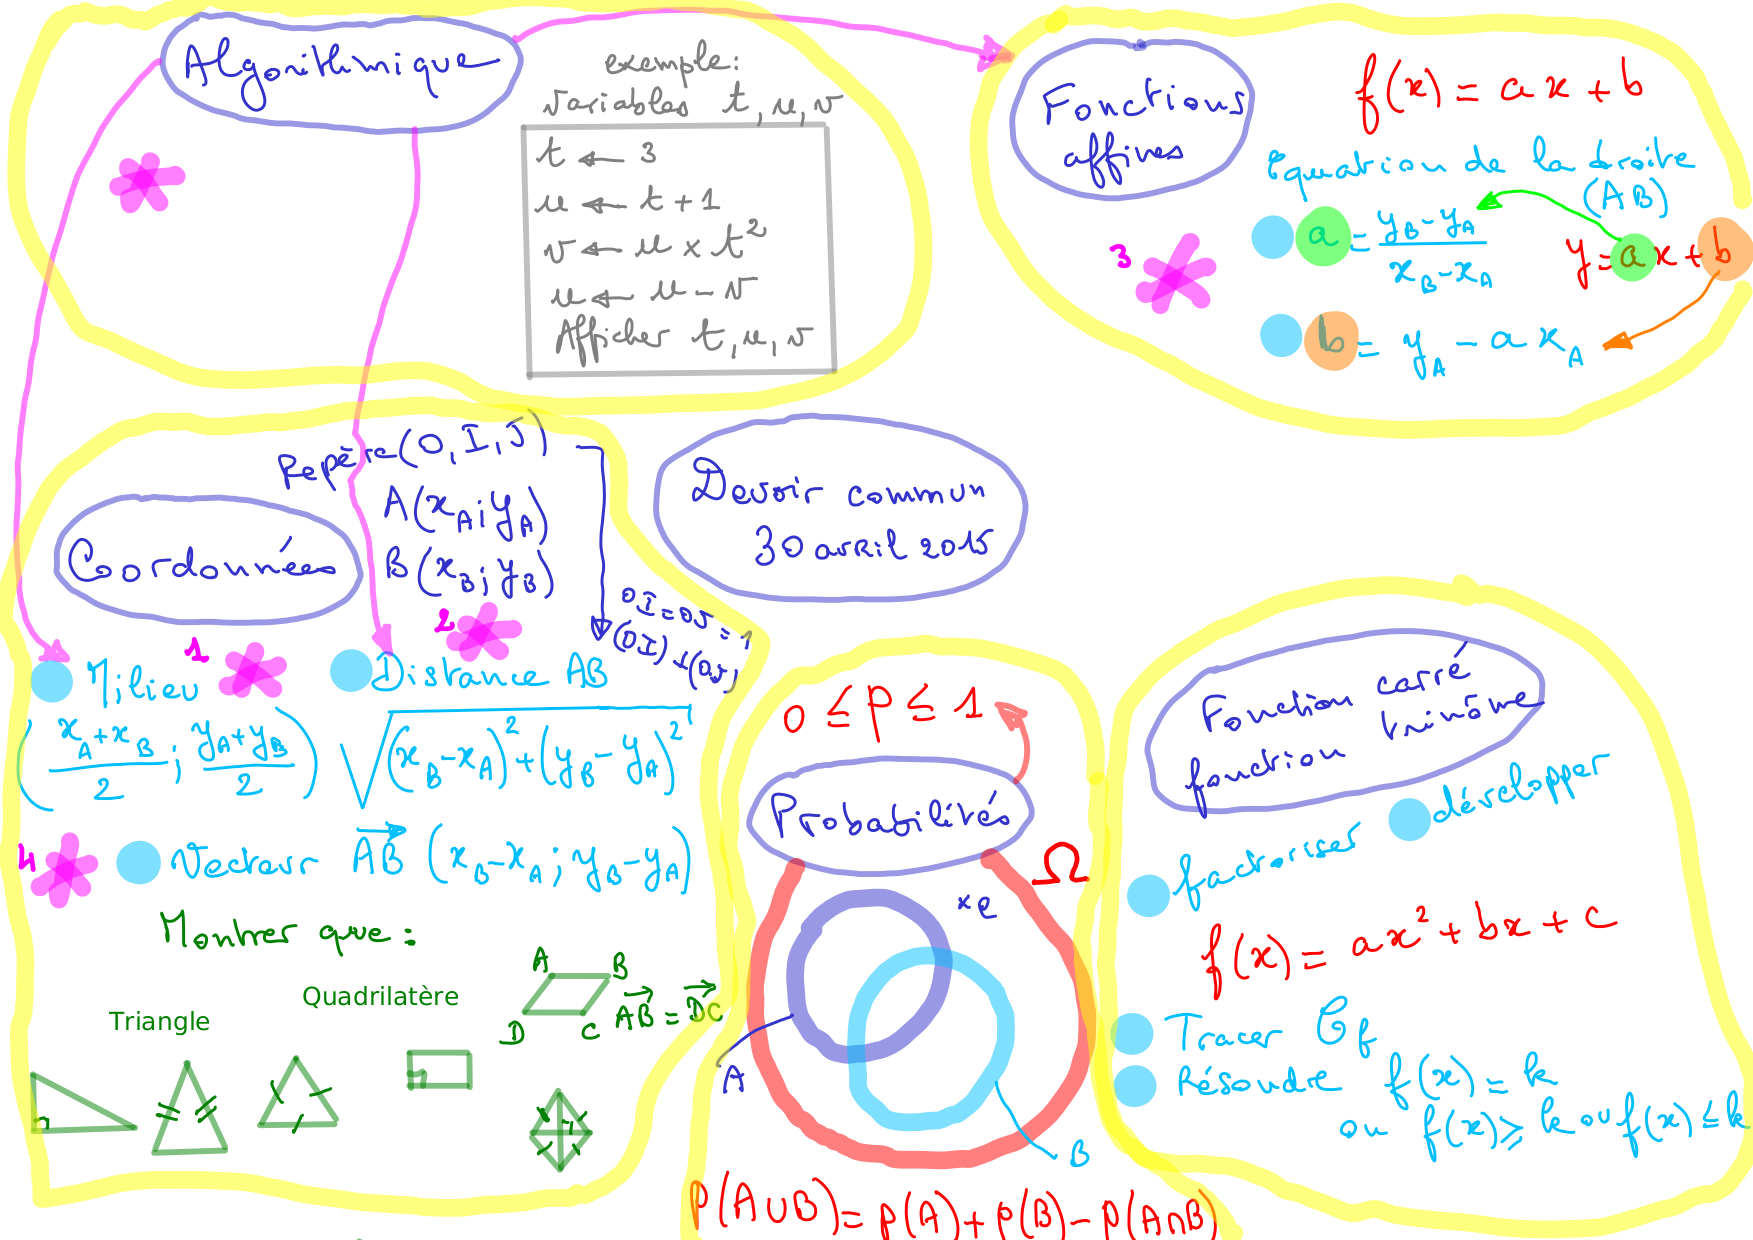 Algorithmique
exemple:
variables t, u, v
t ← 3
u ← t + 1
v ← u × t²
u ← u - v
Afficher t, u, v
Fonctions
affines
f(x) = ax + b
Equation de la droite
(AB)
a = (yB - yA)/(xB - xA)
y = ax + b
3
b = yA - a xA
Repère (O, I, J)
A(xA; yA)
B(xB; yB)
Coordonnées
OI = OJ = 1
(OI) ⊥ (OJ)
Devoir commun
30 avril 2015
1
Milieu
((xA + xB)/2; (yA + yB)/2)
2
Distance AB
√((xB - xA)² + (yB - yA)²)
4
Vecteur AB→ (xB - xA; yB - yA)
Montrer que:
Triangle
Quadrilatère
A B
D C
AB→ = DC→
0 ≤ p ≤ 1
Probabilités
Ω
× e
A
B
p(A∪B) = p(A) + p(B) - p(A∩B)
Fonction carré
fonction trinôme
développer
factoriser
f(x) = ax² + bx + c
Tracer Cf
Résoudre f(x) = k
ou f(x) ≥ k ou f(x) ≤ k